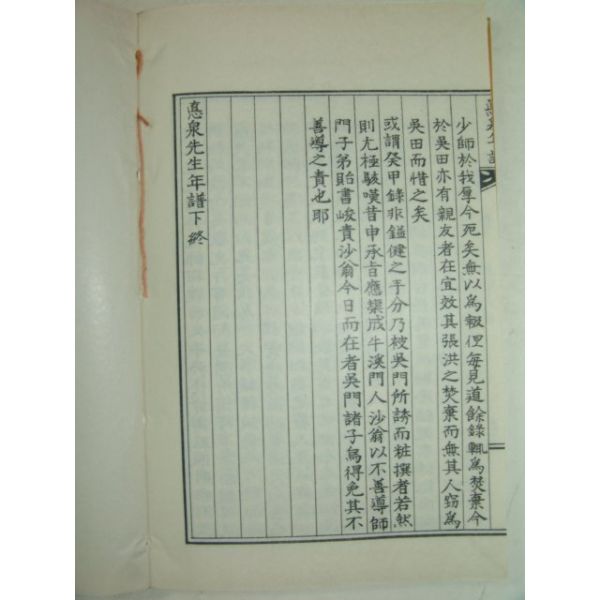 少師於我厚今死矣無以爲報但每見道餘錄輒爲焚棄今
於吳田亦有親友者在宜效其張洪之焚棄而無其人窃爲
吳田而惜之矣
或謂癸甲錄非鎰健之手分乃被吳門所誘而粧撰者若然
則尤極駭嘆昔申承旨應榘成牛溪門人沙翁以不善導師
門子弟貽書峻責沙翁今日而在者吳門諸子烏得免其不
善導之責也耶
惪泉先生年譜下終